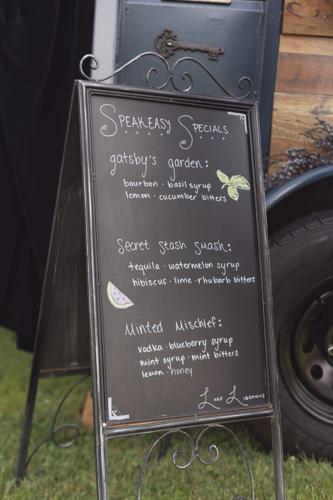 Speakeasy Specials
gatsby's garden:
bourbon · basil syrup
lemon · cucumber bitters
Secret Stash Smash:
tequila · watermelon syrup
hibiscus · lime · rhubarb bitters
Minted Mischief:
vodka · blueberry syrup
mint syrup · mint bitters
lemon · honey
Luxe Libations